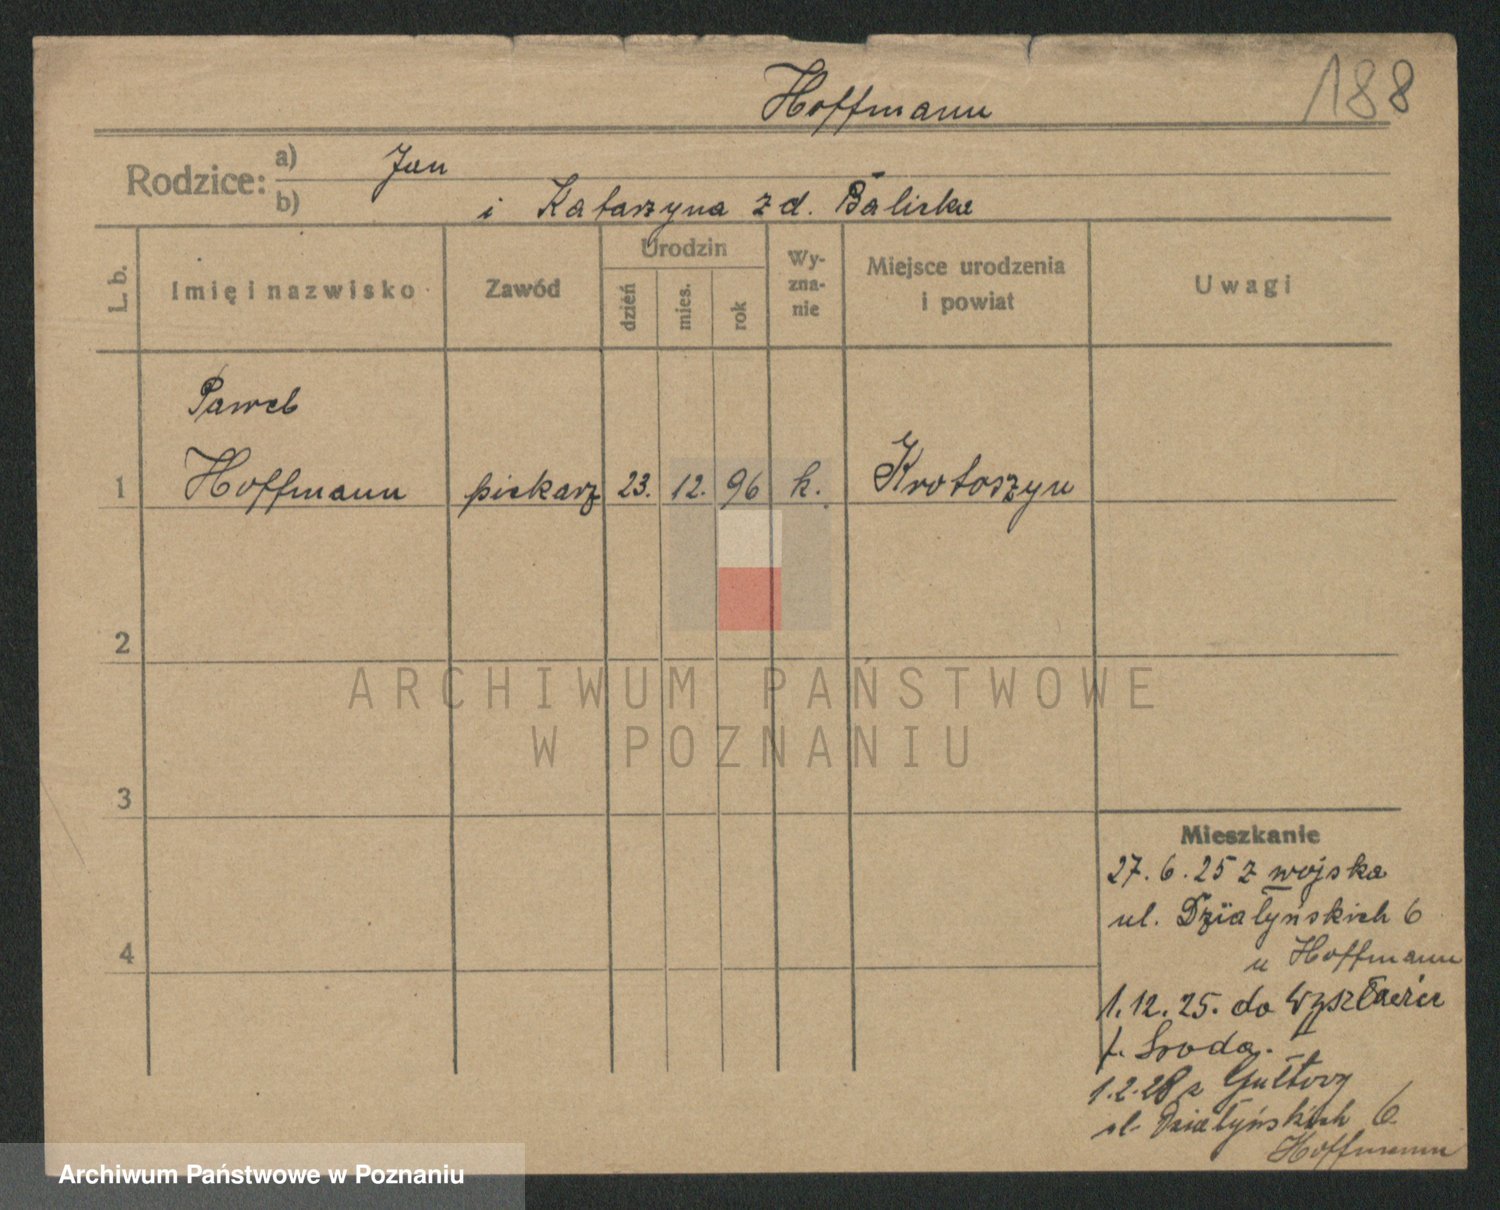 Hoffmann
188
Rodzice:
a) Jan
b) i Katarzyna z d. Balicka
L. b.
Imię i nazwisko
Zawód
Urodzin
dzień
mies.
rok
Wy-
zna-
nie
Miejsce urodzenia
i powiat
Uwagi
Paweł
1 Hoffmann piekarz 23. 12. 96 k. Krotoszyn
2
3
4
ARCHIWUM PAŃSTWOWE
W POZNANIU
Mieszkanie
27.6.25 z wojska
ul. Działyńskich 6
u Hoffmann
1.12.25. do
Środa.
1.2.28 z Gułtowy
ul. Działyńskich 6
Hoffmann
Archiwum Państwowe w Poznaniu